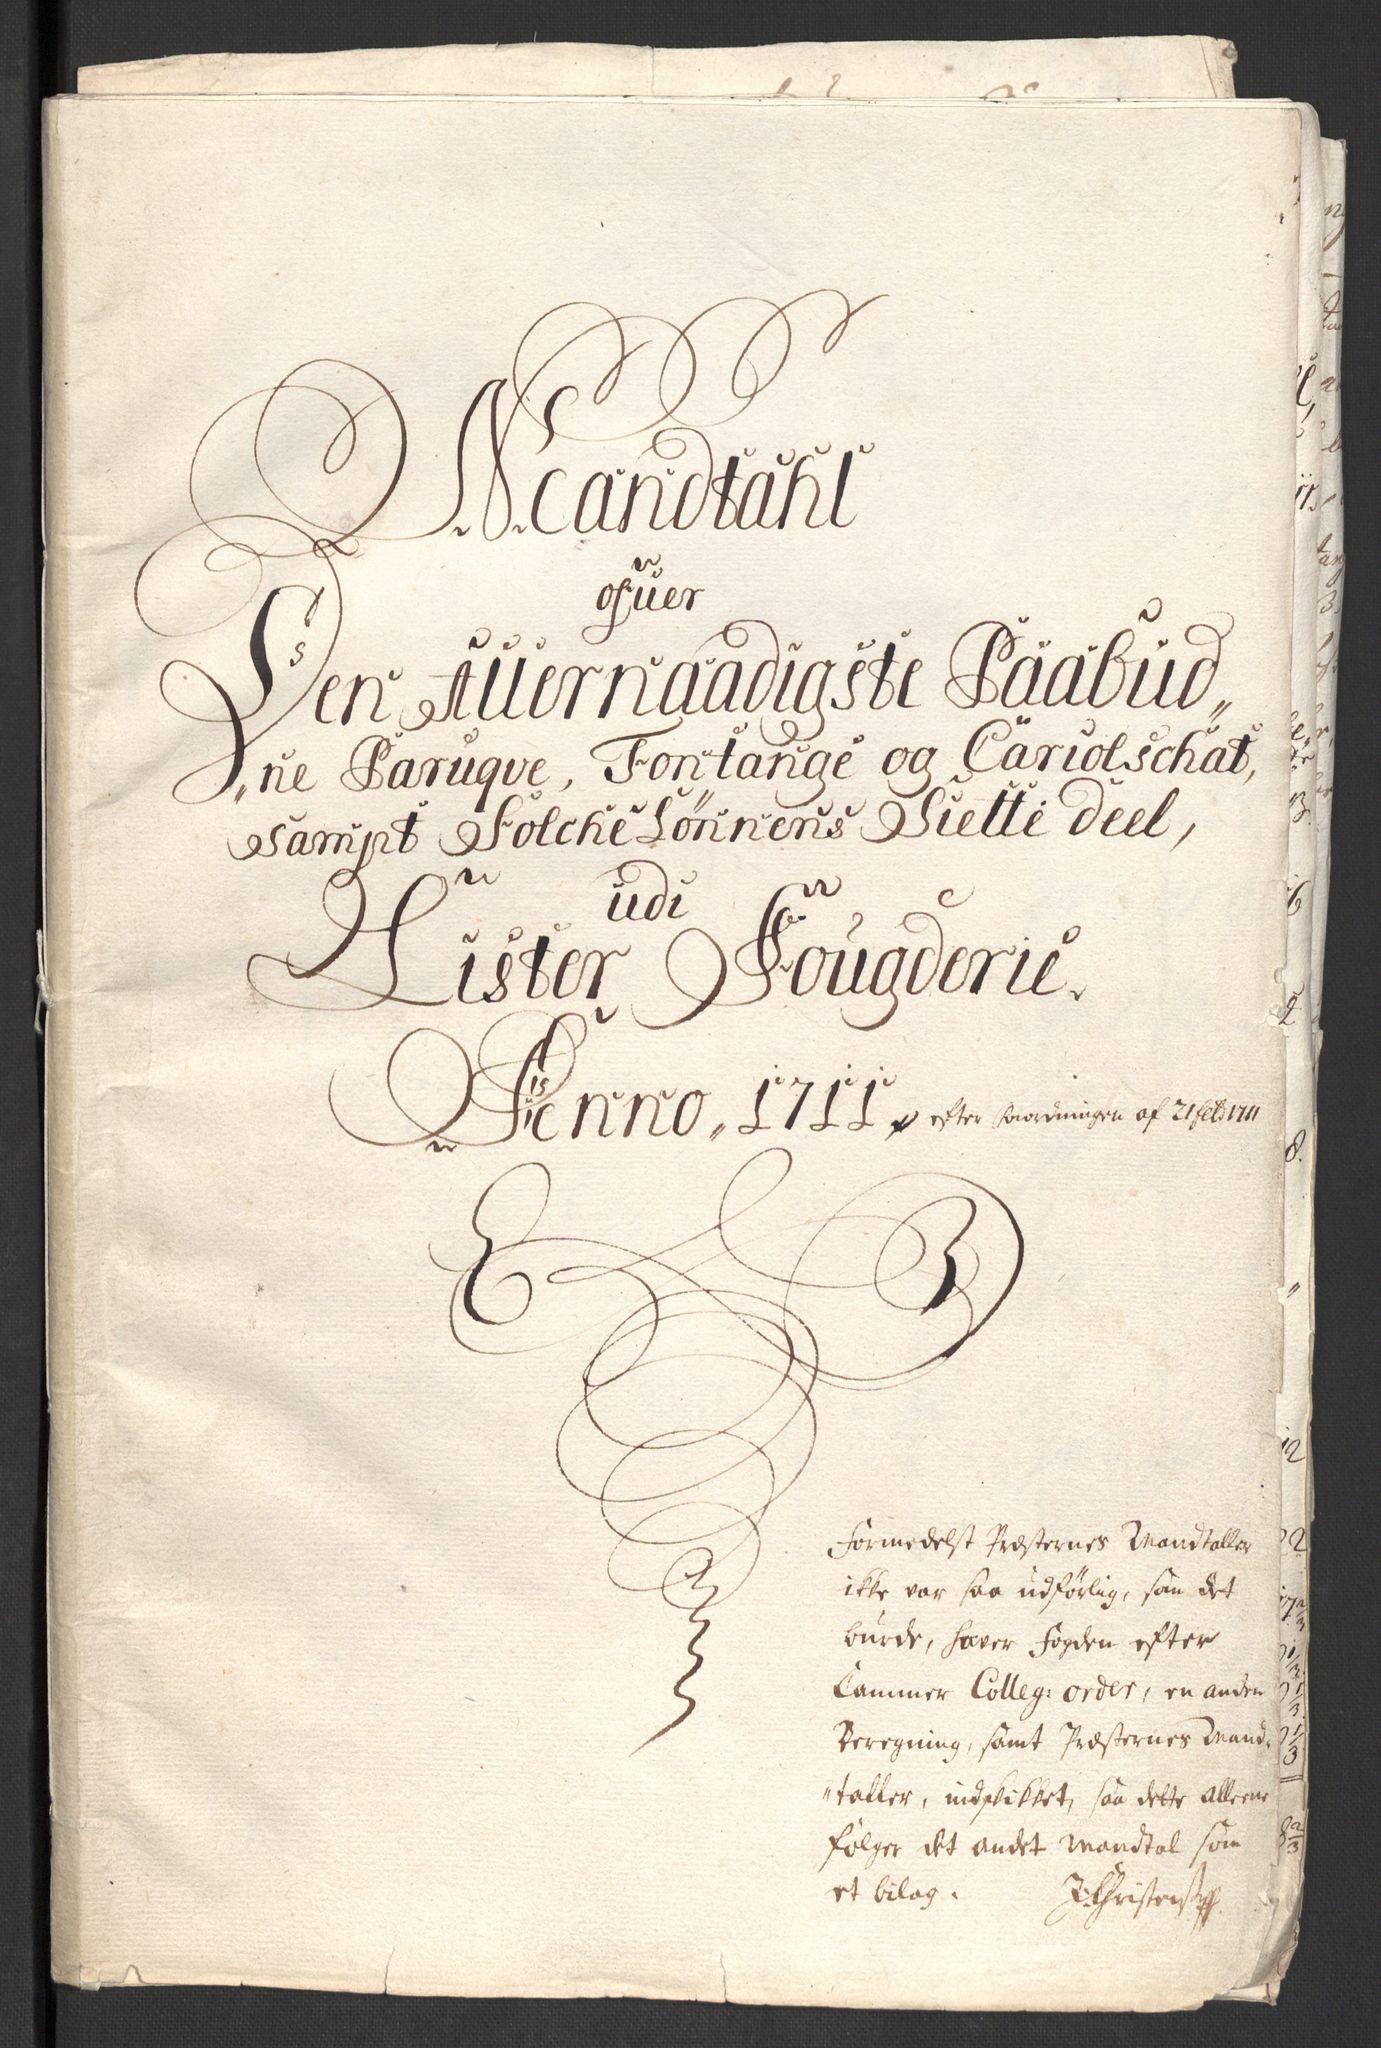 Mandtahl
ofuer
Den Allernaadigste Paabud„
„ne Paruqve, Fontange og Cariolschat,
sampt Folche Lønnens Siette deel,
udi
Lister Fougderie.
Anno, 1711, efter forordningen af 21 feb: 1711
formedelst Præsternes Mandtaller
ikke var saa udførlig, som det
burde, haver fogden efter
Cammer Colleg: order, en anden
Beregning, samt Præsternes Mand„
„taller, indskikket, saa dette alleene
følger det andet Mandtal som
et bilag.
J: Christens